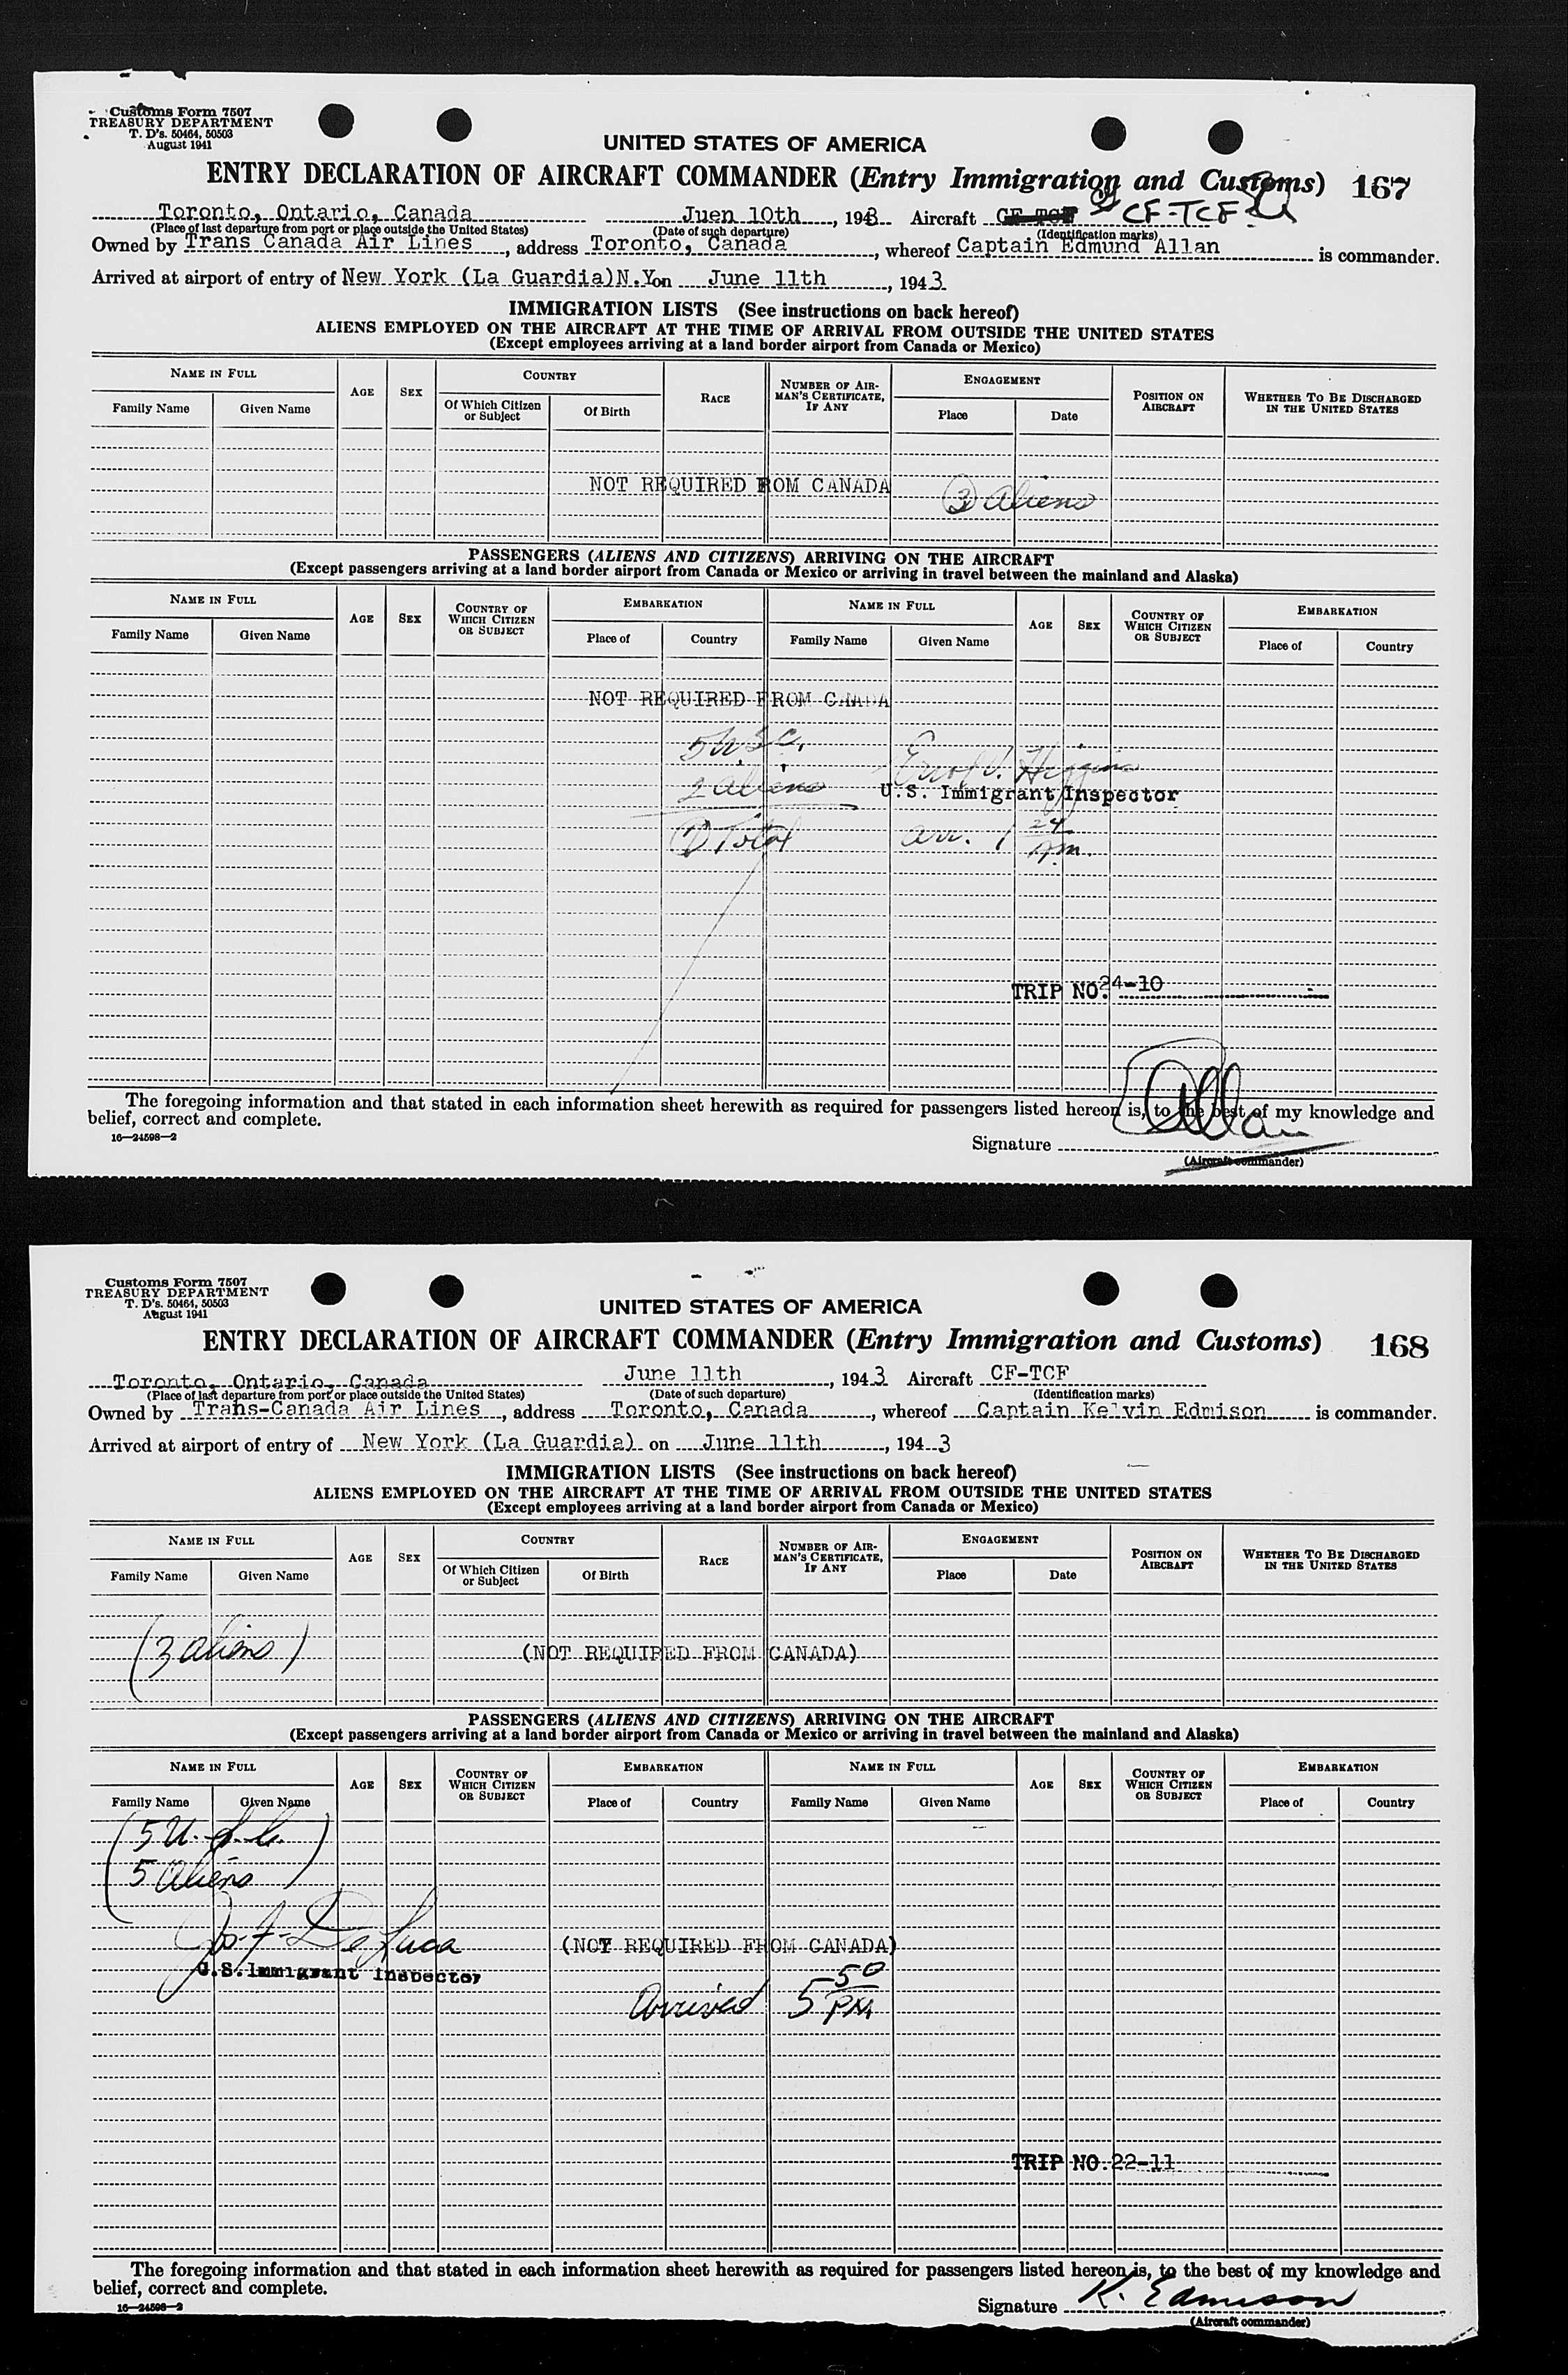 Customs Form 7507
TREASURY DEPARTMENT
T. D's. 50464, 50503
August 1941
UNITED STATES OF AMERICA
ENTRY DECLARATION OF AIRCRAFT COMMANDER (Entry Immigration and Customs) 167
Toronto, Ontario, Canada Juen 10th, 1943 Aircraft CF-TCF CF-TCF
(Place of last departure from port or place outside the United States) (Date of such departure) (Identification marks)
Owned by Trans Canada Air Lines, address Toronto, Canada, whereof Captain Edmund Allan is commander.
Arrived at airport of entry of New York (La Guardia)N.Y. on June 11th, 1943
IMMIGRATION LISTS (See instructions on back hereof)
ALIENS EMPLOYED ON THE AIRCRAFT AT THE TIME OF ARRIVAL FROM OUTSIDE THE UNITED STATES
(Except employees arriving at a land border airport from Canada or Mexico)
NAME IN FULL AGE SEX COUNTRY RACE NUMBER OF AIRMAN'S CERTIFICATE, IF ANY ENGAGEMENT POSITION ON AIRCRAFT WHETHER TO BE DISCHARGED IN THE UNITED STATES
Family Name Given Name Of Which Citizen or Subject Of Birth Place Date
NOT REQUIRED FROM CANADA
(3) aliens
PASSENGERS (ALIENS AND CITIZENS) ARRIVING ON THE AIRCRAFT
(Except passengers arriving at a land border airport from Canada or Mexico or arriving in travel between the mainland and Alaska)
NAME IN FULL AGE SEX COUNTRY OF WHICH CITIZEN OR SUBJECT EMBARKATION NAME IN FULL AGE SEX COUNTRY OF WHICH CITIZEN OR SUBJECT EMBARKATION
Family Name Given Name Place of Country Family Name Given Name Place of Country
NOT REQUIRED FROM CANADA
5 USC.
Higgins
2 aliens
U.S. Immigrant Inspector
(7) Total arr. 1 24
TRIP NO. 24-10
The foregoing information and that stated in each information sheet herewith as required for passengers listed hereon is, to the best of my knowledge and
belief, correct and complete.
16—24598—2
Signature Allan
(Aircraft commander)
Customs Form 7507
TREASURY DEPARTMENT
T. D's. 50464, 50503
August 1941
UNITED STATES OF AMERICA
ENTRY DECLARATION OF AIRCRAFT COMMANDER (Entry Immigration and Customs) 168
Toronto, Ontario, Canada June 11th, 1943 Aircraft CF-TCF
(Place of last departure from port or place outside the United States) (Date of such departure) (Identification marks)
Owned by Trans-Canada Air Lines, address Toronto, Canada, whereof Captain Kelvin Edmison is commander.
Arrived at airport of entry of New York (La Guardia) on June 11th, 1943
IMMIGRATION LISTS (See instructions on back hereof)
ALIENS EMPLOYED ON THE AIRCRAFT AT THE TIME OF ARRIVAL FROM OUTSIDE THE UNITED STATES
(Except employees arriving at a land border airport from Canada or Mexico)
NAME IN FULL AGE SEX COUNTRY RACE NUMBER OF AIRMAN'S CERTIFICATE, IF ANY ENGAGEMENT POSITION ON AIRCRAFT WHETHER TO BE DISCHARGED IN THE UNITED STATES
Family Name Given Name Of Which Citizen or Subject Of Birth Place Date
(3 aliens) (NOT REQUIRED FROM CANADA)
PASSENGERS (ALIENS AND CITIZENS) ARRIVING ON THE AIRCRAFT
(Except passengers arriving at a land border airport from Canada or Mexico or arriving in travel between the mainland and Alaska)
NAME IN FULL AGE SEX COUNTRY OF WHICH CITIZEN OR SUBJECT EMBARKATION NAME IN FULL AGE SEX COUNTRY OF WHICH CITIZEN OR SUBJECT EMBARKATION
Family Name Given Name Place of Country Family Name Given Name Place of Country
(5 U.S.C.)
5 Aliens
Jos. F. De Luca (NOT REQUIRED FROM CANADA)
U.S. Immigrant Inspector
Arrived 5 50 PM
TRIP NO. 22-11
The foregoing information and that stated in each information sheet herewith as required for passengers listed hereon is, to the best of my knowledge and
belief, correct and complete.
16—24598—2
Signature K. Edmison
(Aircraft commander)